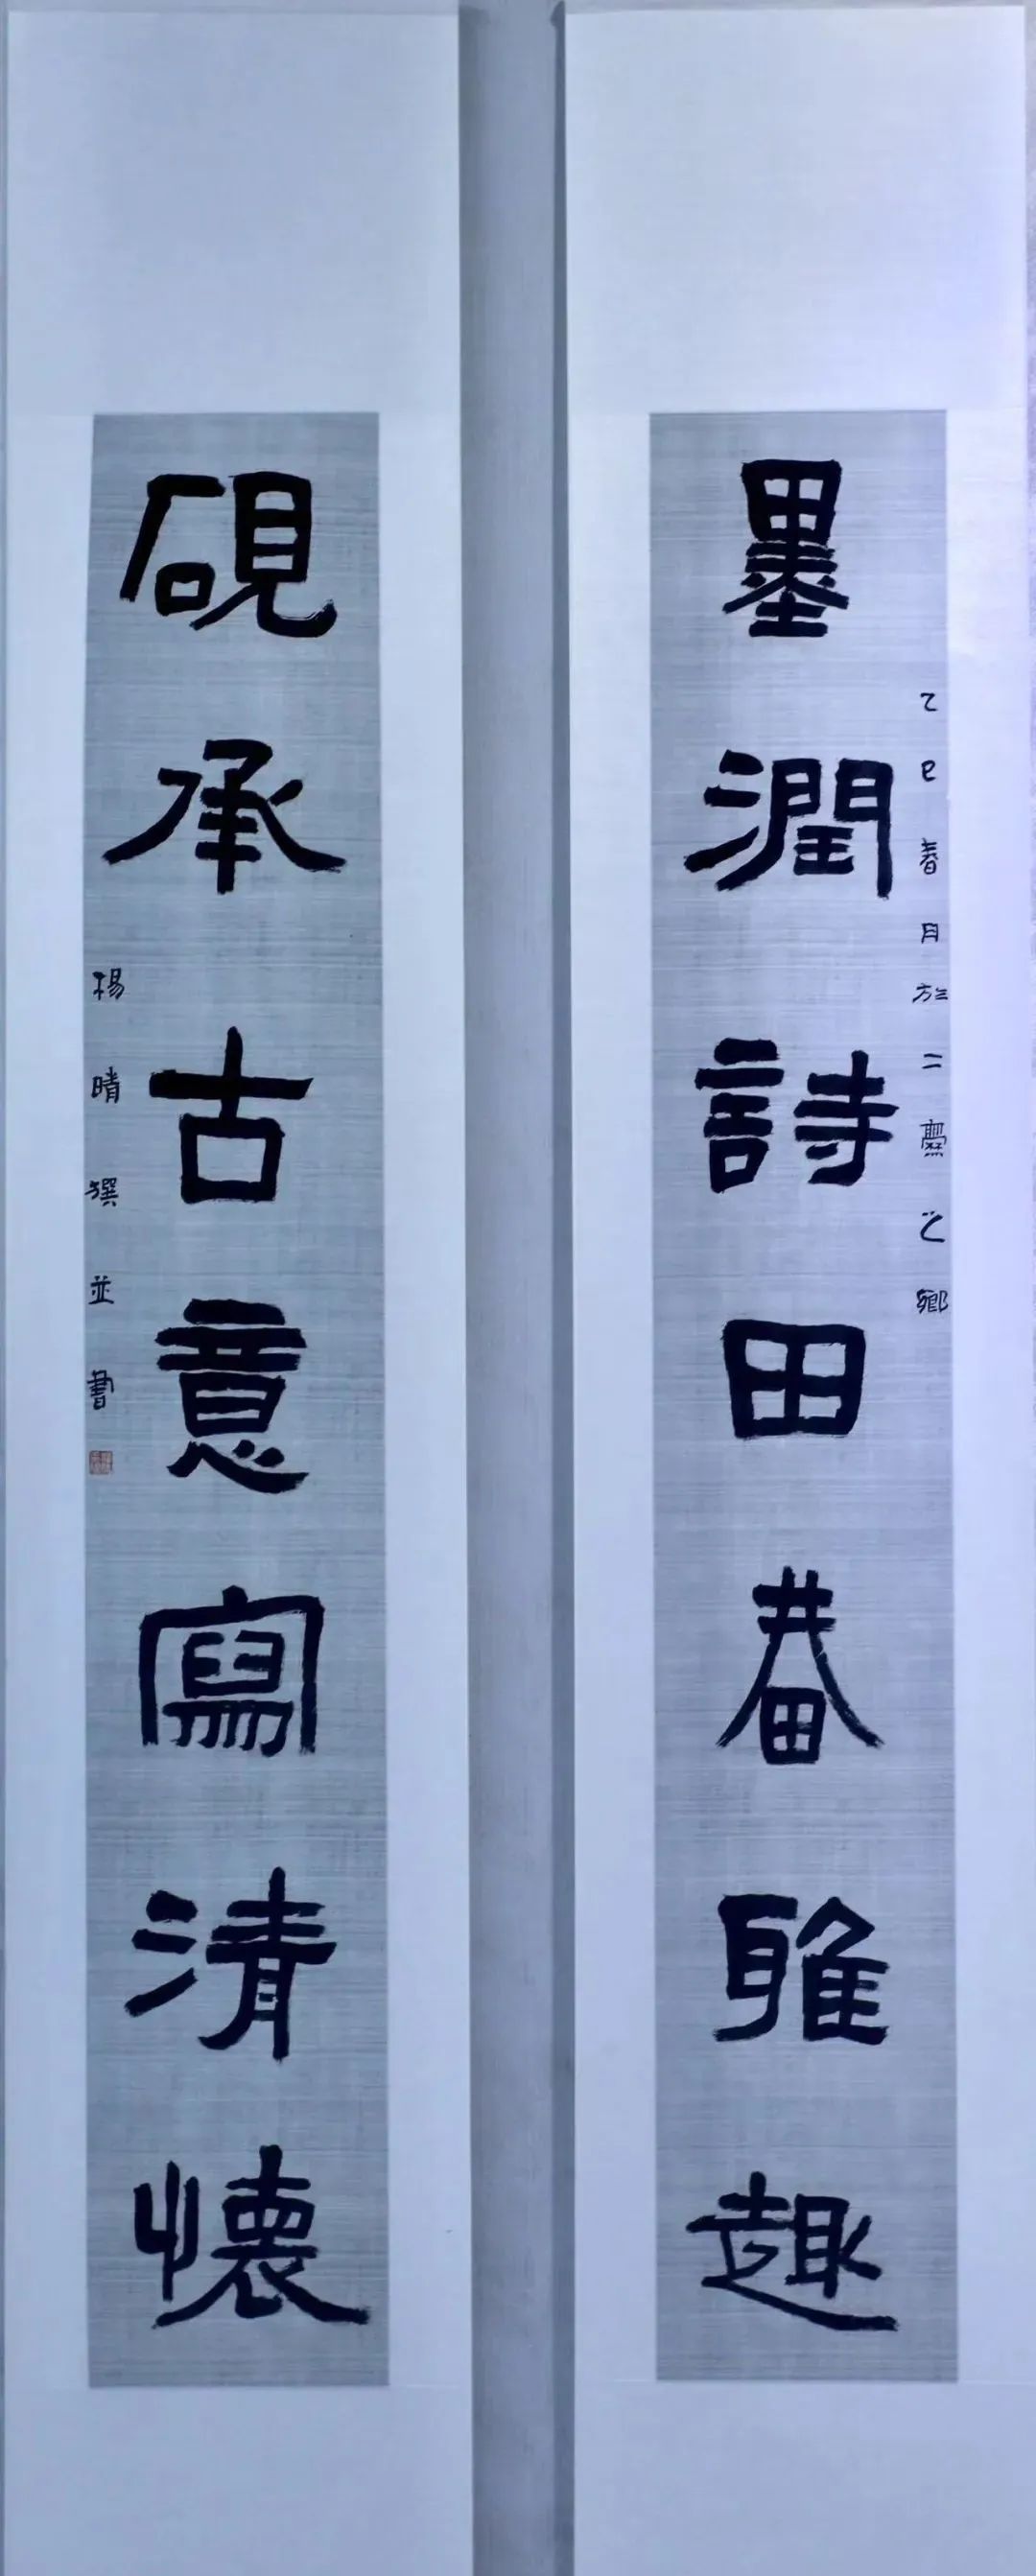 墨潤詩田畊雅趣
乙巳春月於二爨之鄉
硯承古意寫清懷
楊晴撰並書